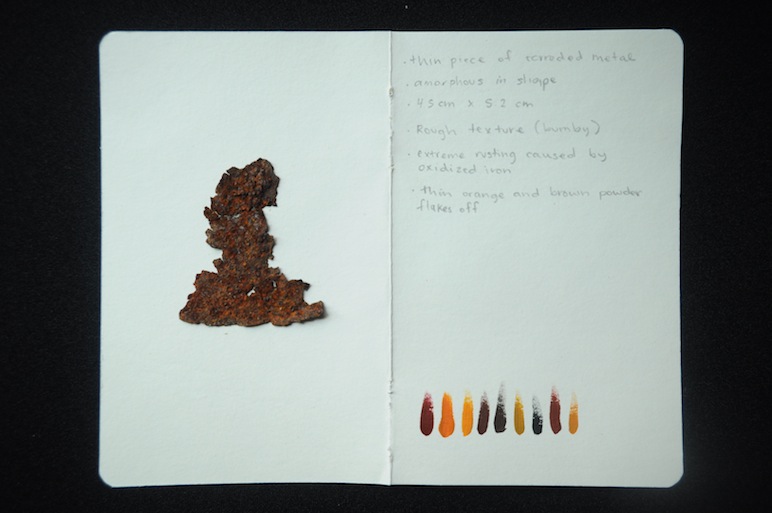 · thin piece of corroded metal
· amorphous in shape
· 4.5 cm x 5.2 cm
· Rough texture (bumby)
· extreme rusting caused by
oxidized iron
· thin orange and brown powder
flakes off